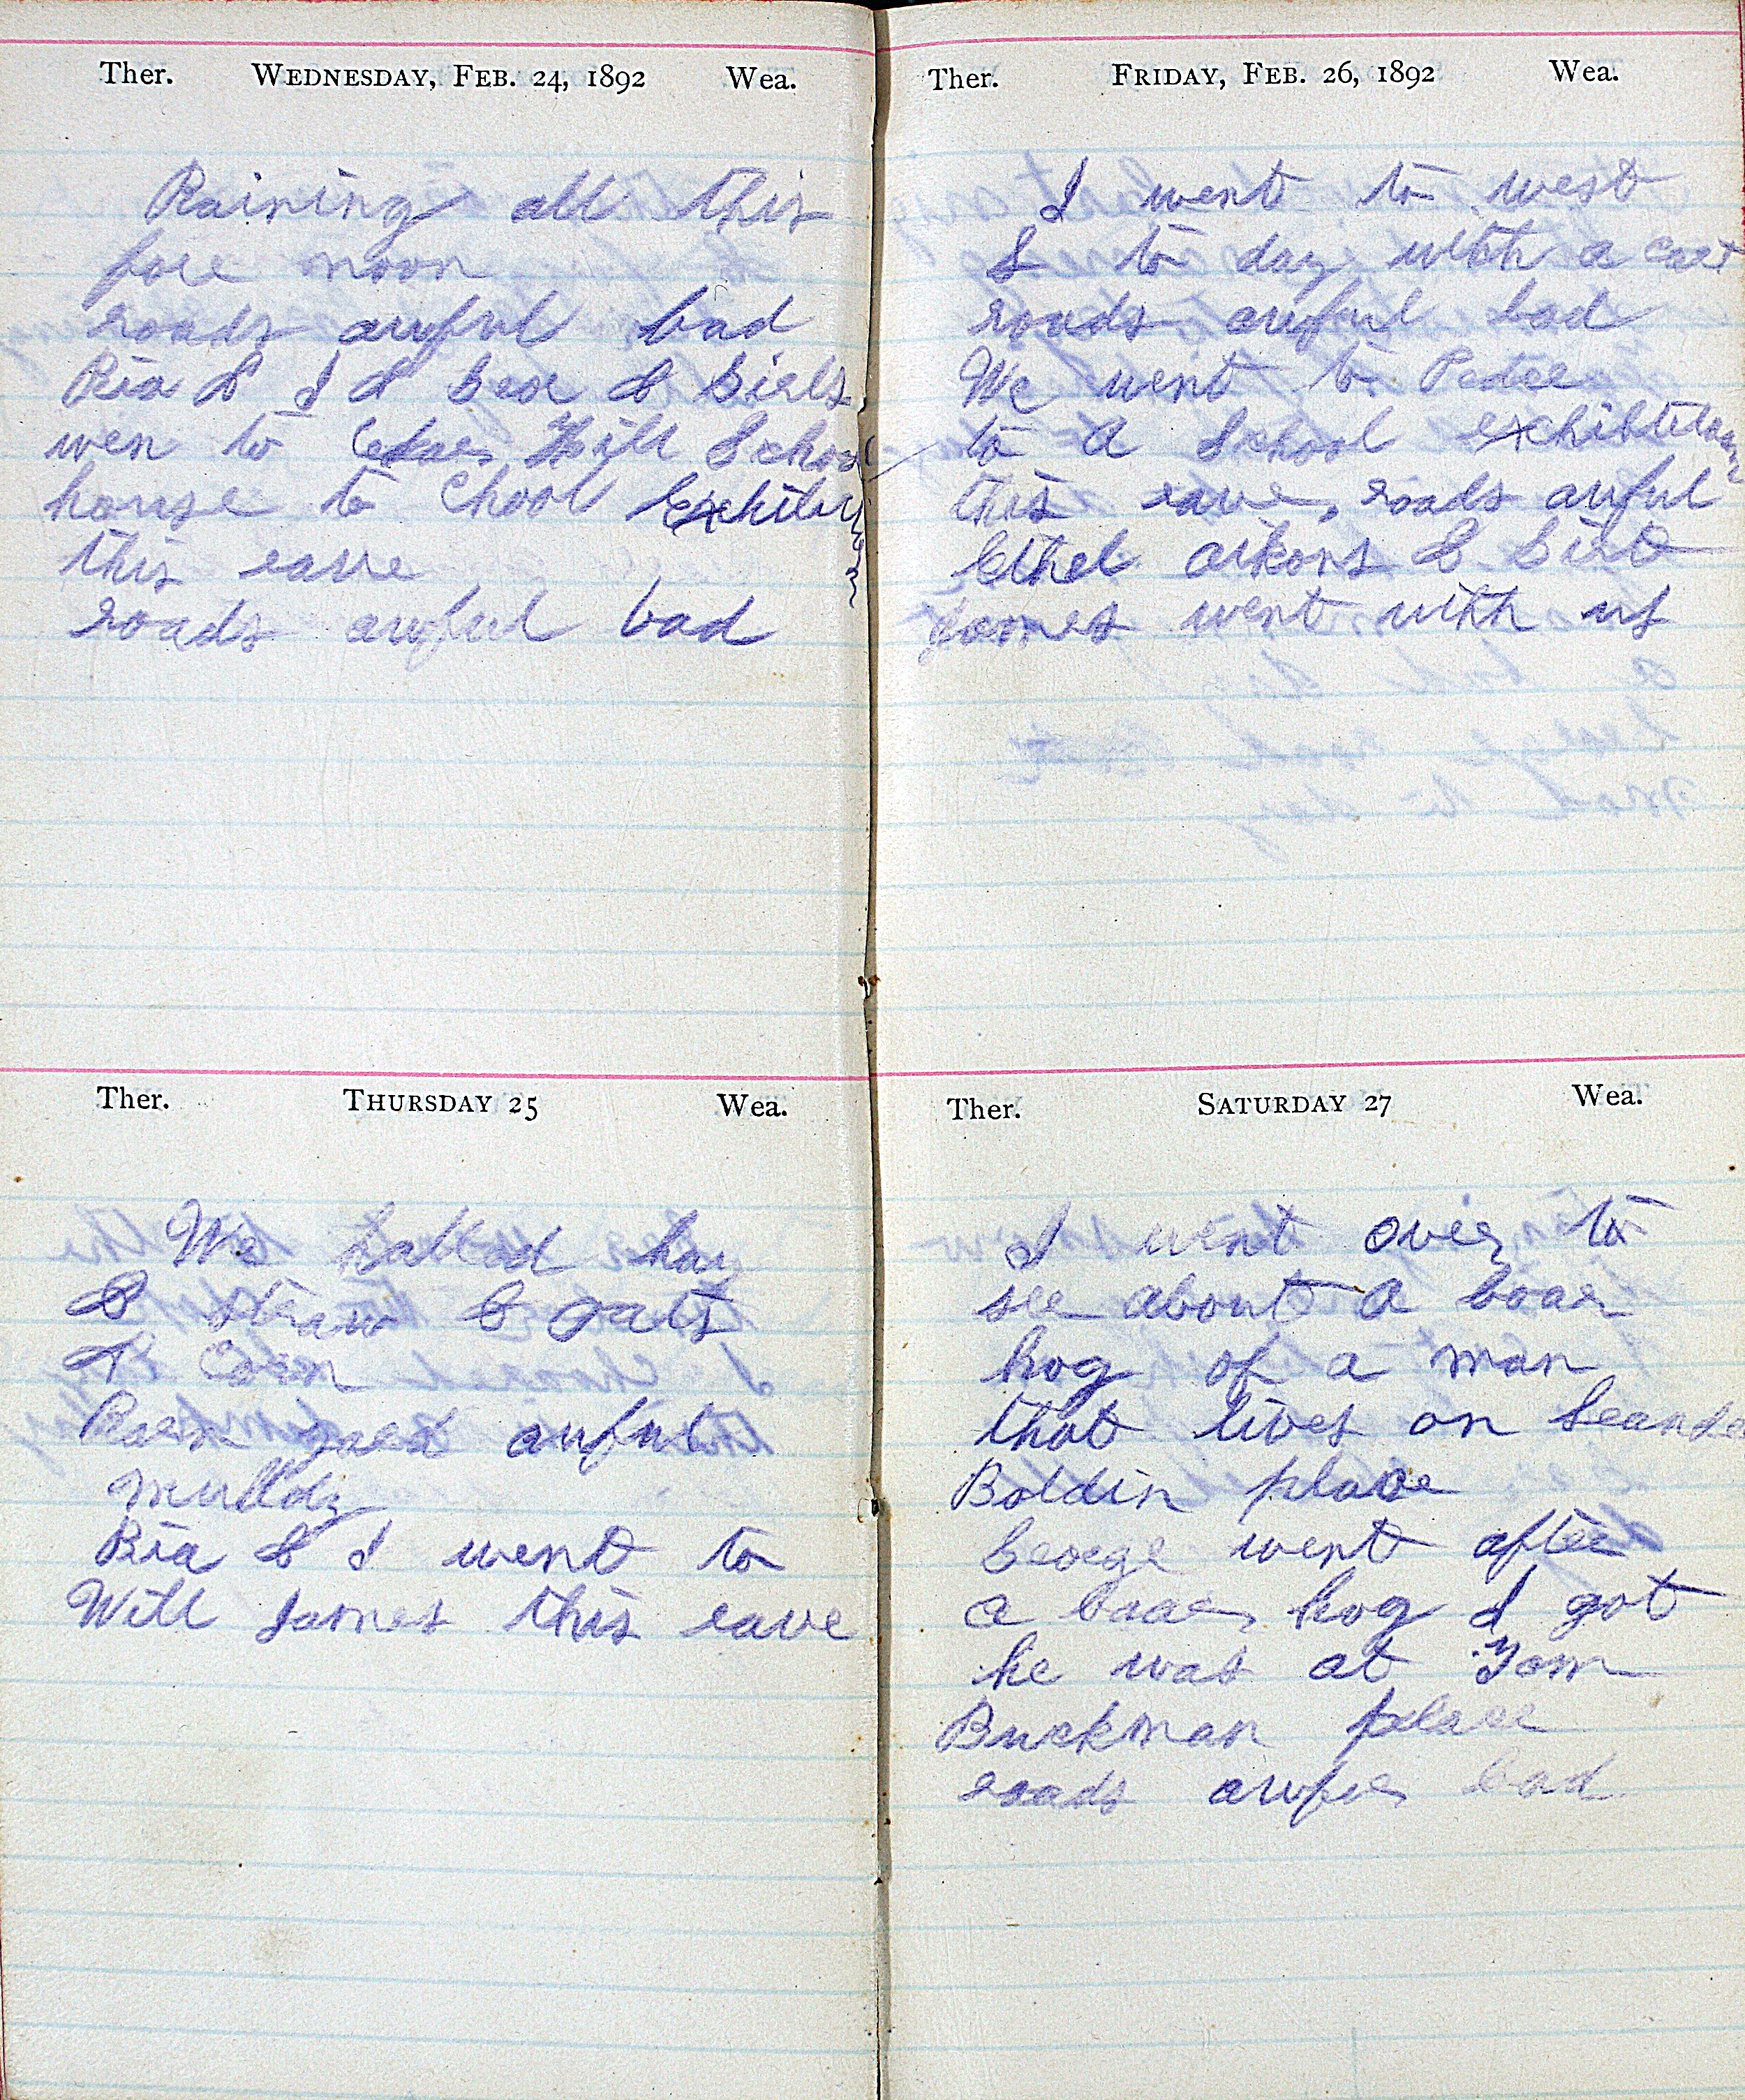 Ther. WEDNESDAY, FEB. 24, 1892 Wea.
Raining all this
fore noon
roads awful bad
Ria & I & Geor & Girls
wen to Cedar Hill School
house to Chool Exhibition
this eave
roads awful bad
Ther. THURSDAY 25 Wea.
We halled hay
& Straw & oats
& Corn
awful
mulldy
Ria & I went to
Will James this eave
Ther. FRIDAY, FEB. 26, 1892 Wea.
I went to west
L to day with a cart
roads awful bad
We went to Pedee
to a School exhibitition
this eave, roads awful
Ethel aikons & Birt
James went with us
Ther. SATURDAY 27 Wea.
I went over to
see about a boaer
hog of a man
that lives on
Boldin place
George went after
a boaer hog I got
he was at Tom
Buckman place
roads awful bad